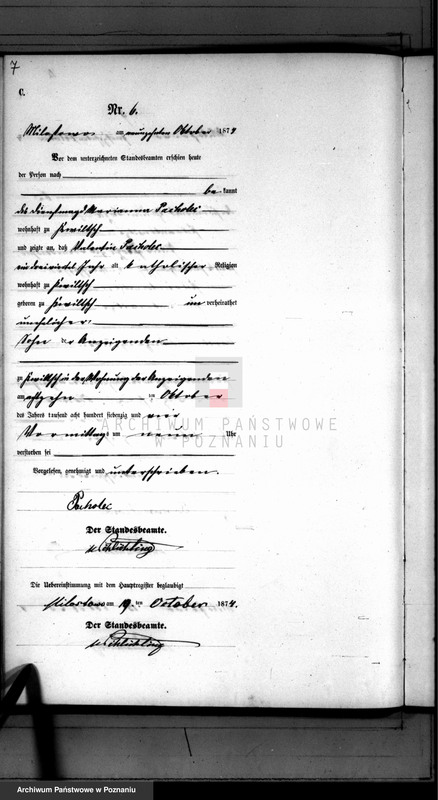 7
C.
Nr. 6.
Milostowo am neunzehnten Oktober 1874
Vor dem unterzeichneten Standesbeamten erschien heute
der Person nach
be kannt
die Dienstmagd Marianna Pacholec
wohnhaft zu Kwiltsch
und zeigte an, daß Valentin Pacholec
Jahr alt katholischer Religion
wohnhaft zu Kwiltsch
geboren zu Kwiltsch un verheirathet
unehelicher
Sohn der Anzeigenden
zu Kwiltsch in der Wohnung der Anzeigenden
am achtzehn ten Oktober
des Jahres tausend acht hundert siebenzig und vier
Vormittag um neun Uhr
verstorben sei
Vorgelesen, genehmigt und unterschrieben.
Pacholec
Der Standesbeamte.
Die Uebereinstimmung mit dem Hauptregister beglaubigt
Milostowo am 19 ten October 1874.
Der Standesbeamte.
ARCHIWUM PAŃSTWOWE
W POZNANIU
Archiwum Państwowe w Poznaniu